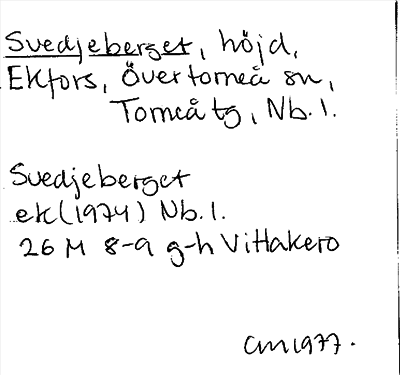 Svedjeberget, höjd,
Ekfors, Övertorneå sn,
Torneå tg, Nb. l.
Svedjeberget
ek (1974) Nb. l.
26 M 8-9 g-h Vittakero
CM 1977.